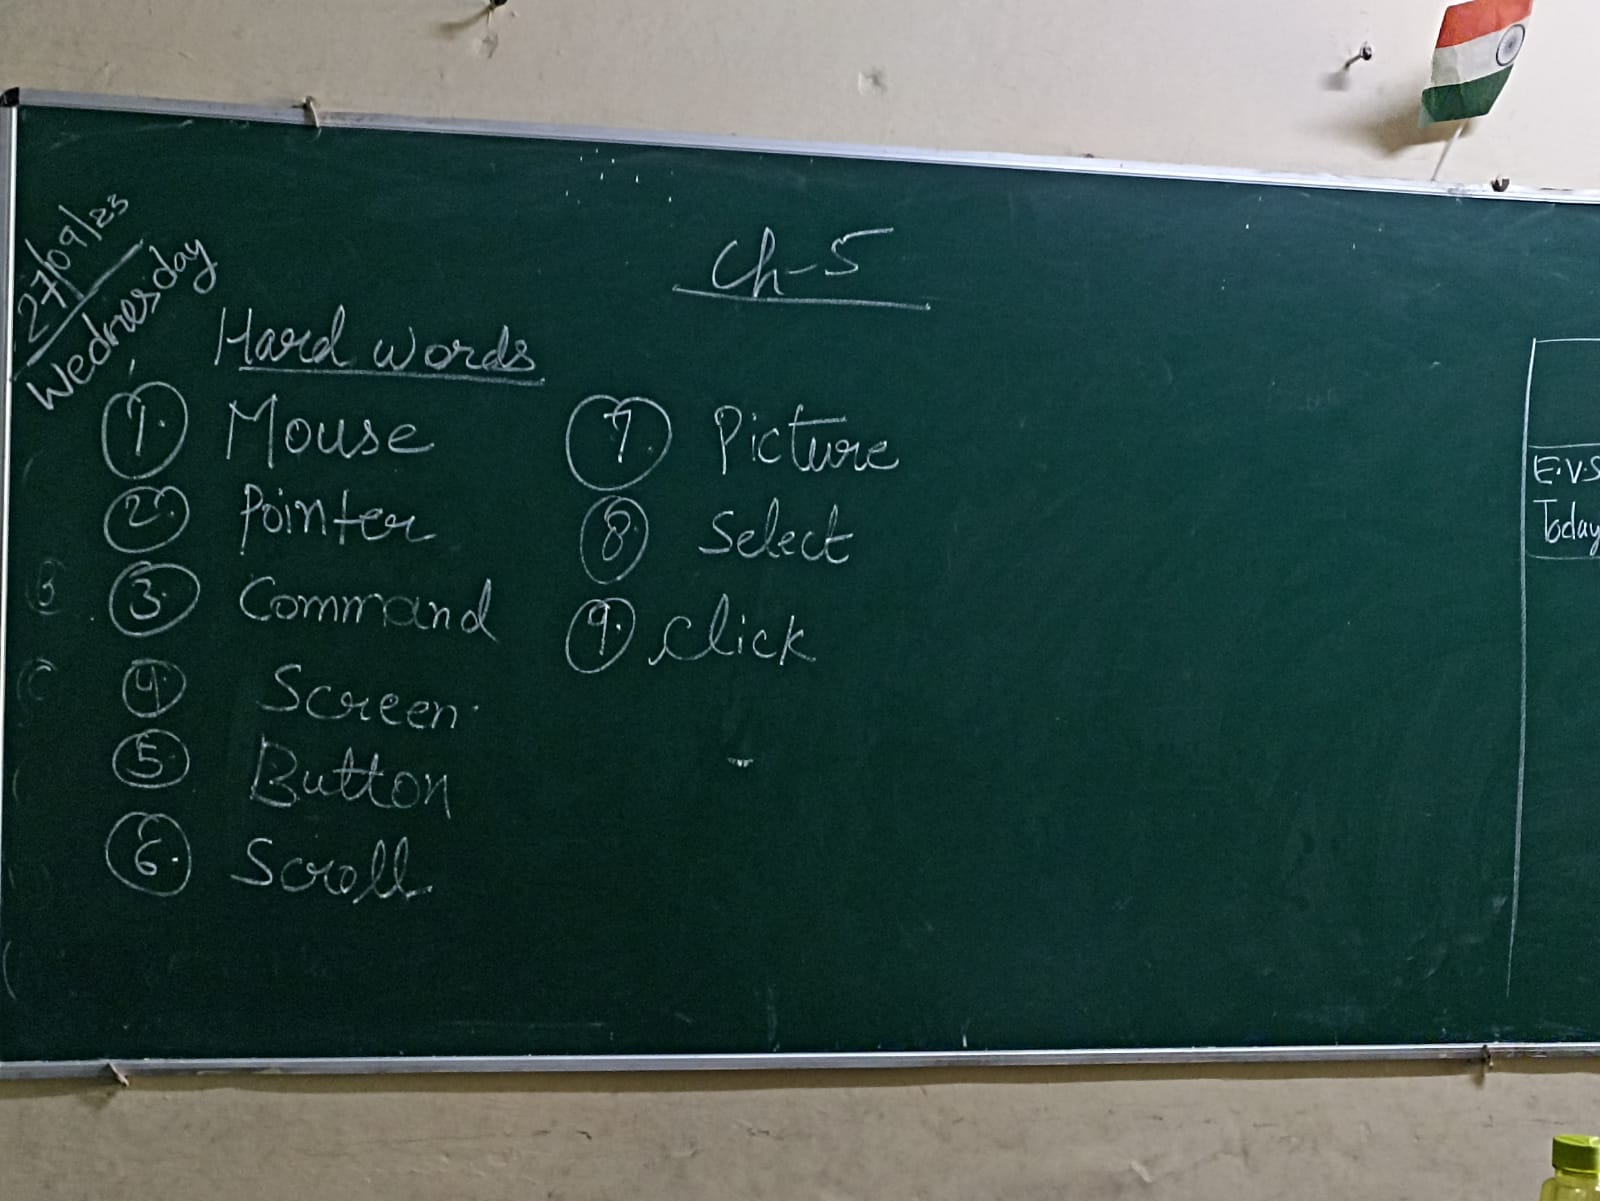 27/09/23
Wednesday
Ch-5
Hard words
1. Mouse
2. Pointer
3. Command
4. Screen
5. Button
6. Scroll
7. Picture
8. Select
9. Click
E.V.S
Today